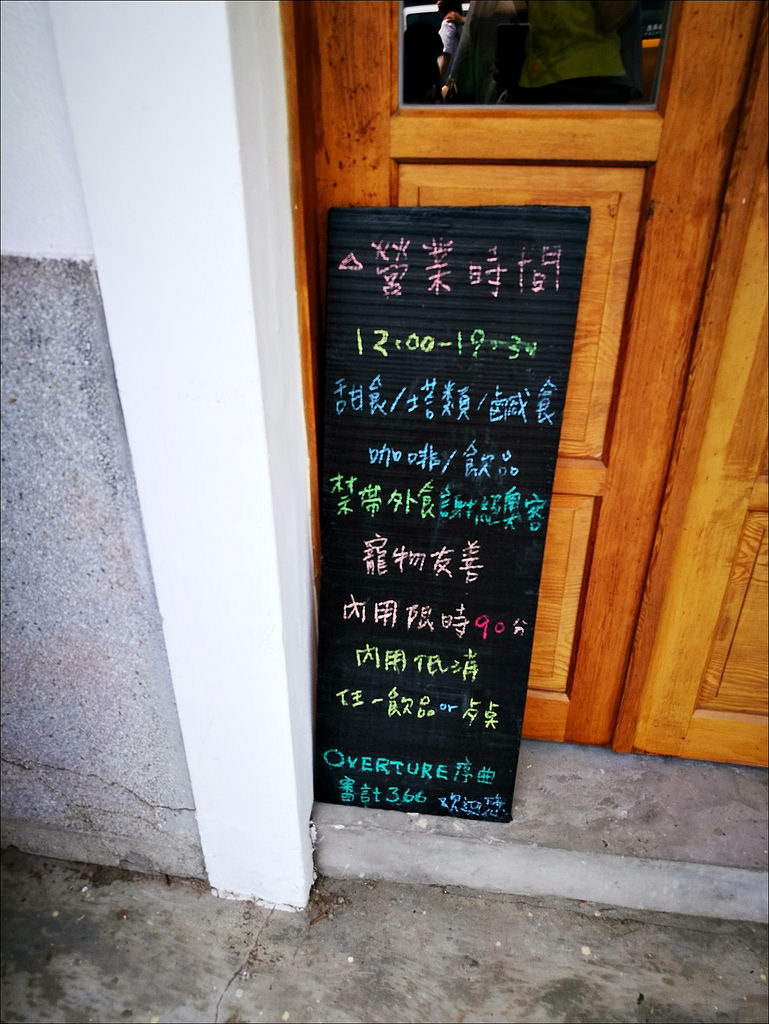 △營業時間
12:00-19:30
甜食/塔類/鹹食
咖啡/飲品
禁帶外食謝絕奧客
寵物友善
內用限時90分
內用低消
任一飲品or 桌
OVERTURE序曲
審計366 歡迎您